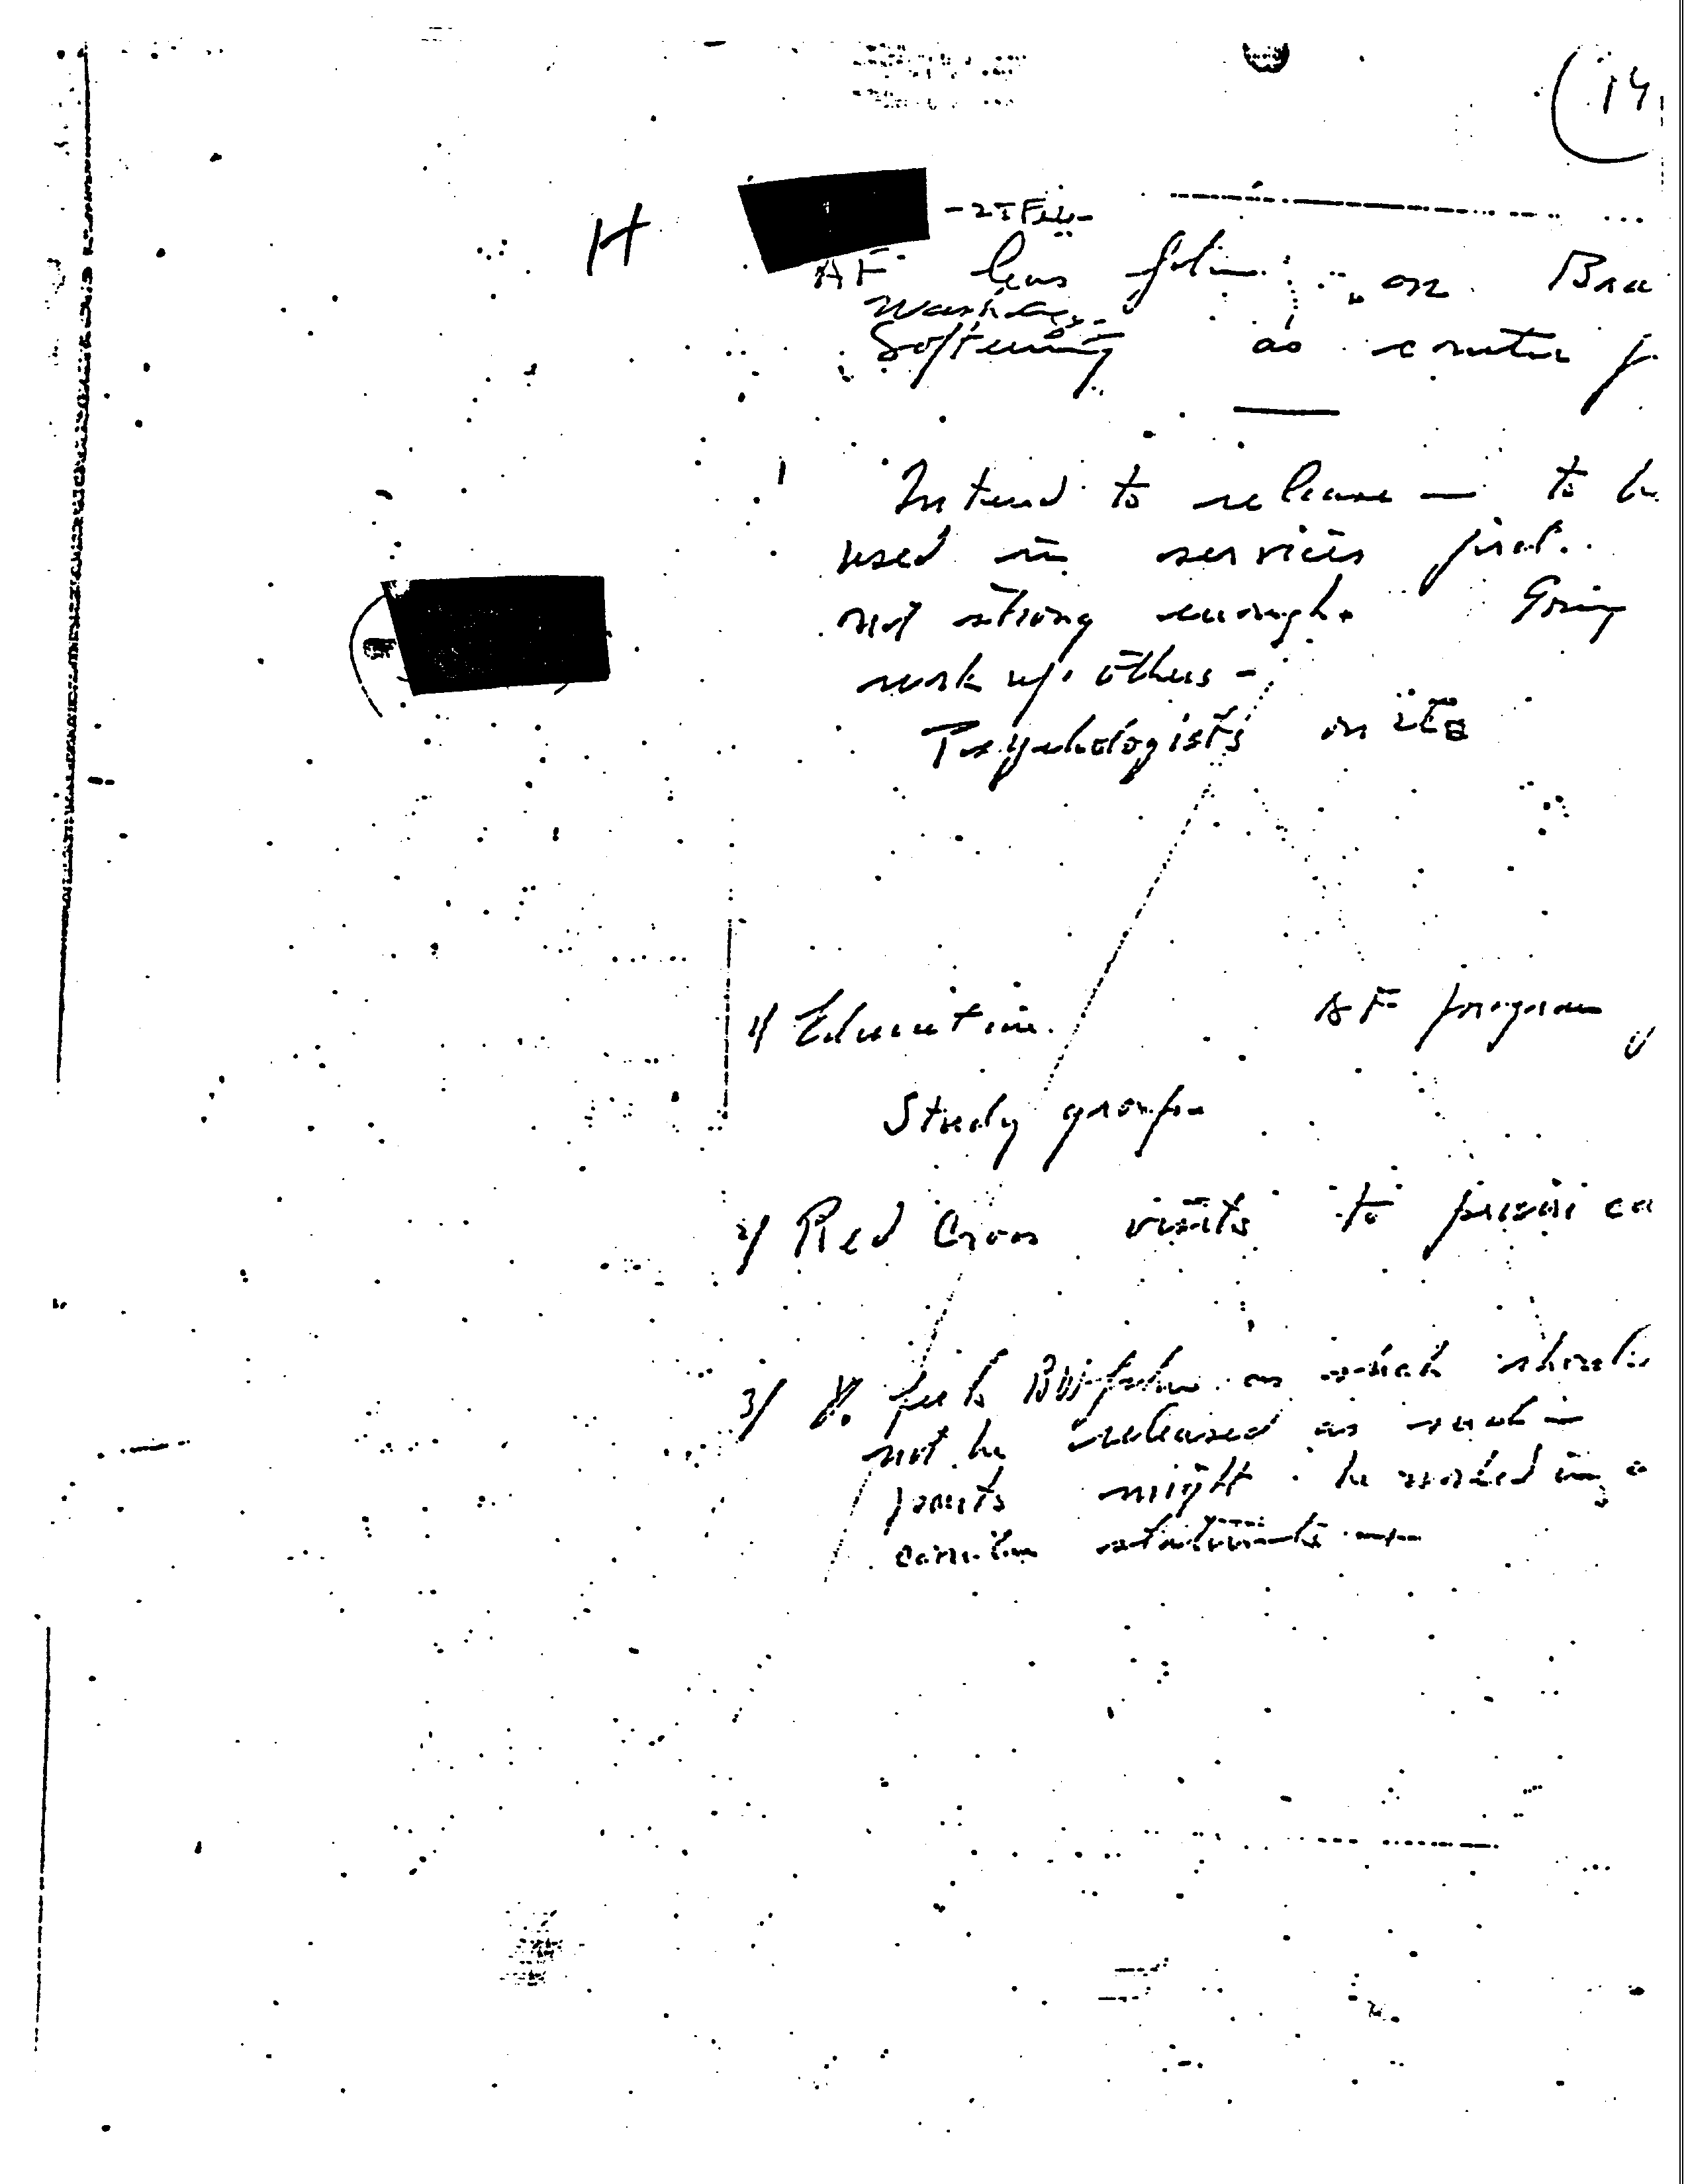 14
H - 25 Feb -
AF has film on
Washing
Softening as counter
Intend to release — to be
used in services first.
not strong enough. Going
work up others -
Psychologists on it
1/ Education. AF program
Study groups
2/ Red Cross visits to
3/ feels BW film as such
not be released as such —
points might be worked in
statements —